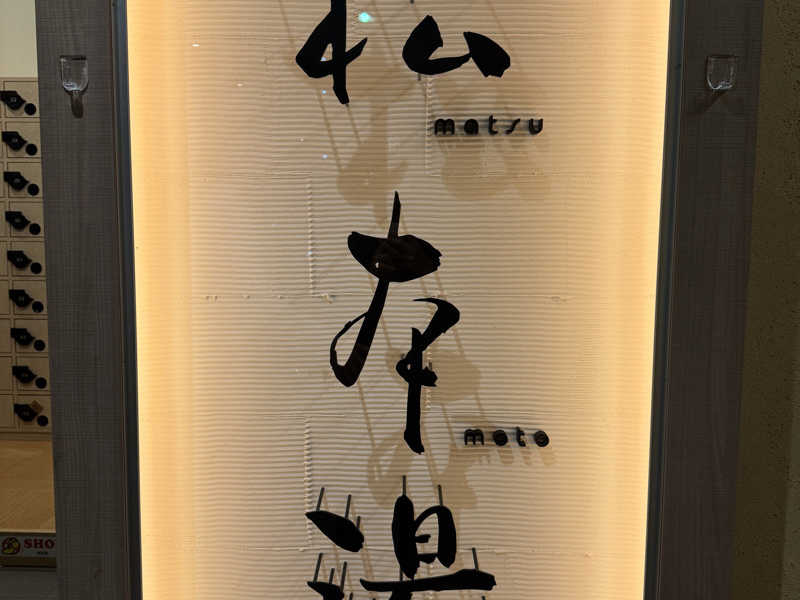 松
matsu
本
moto
湯
SHO